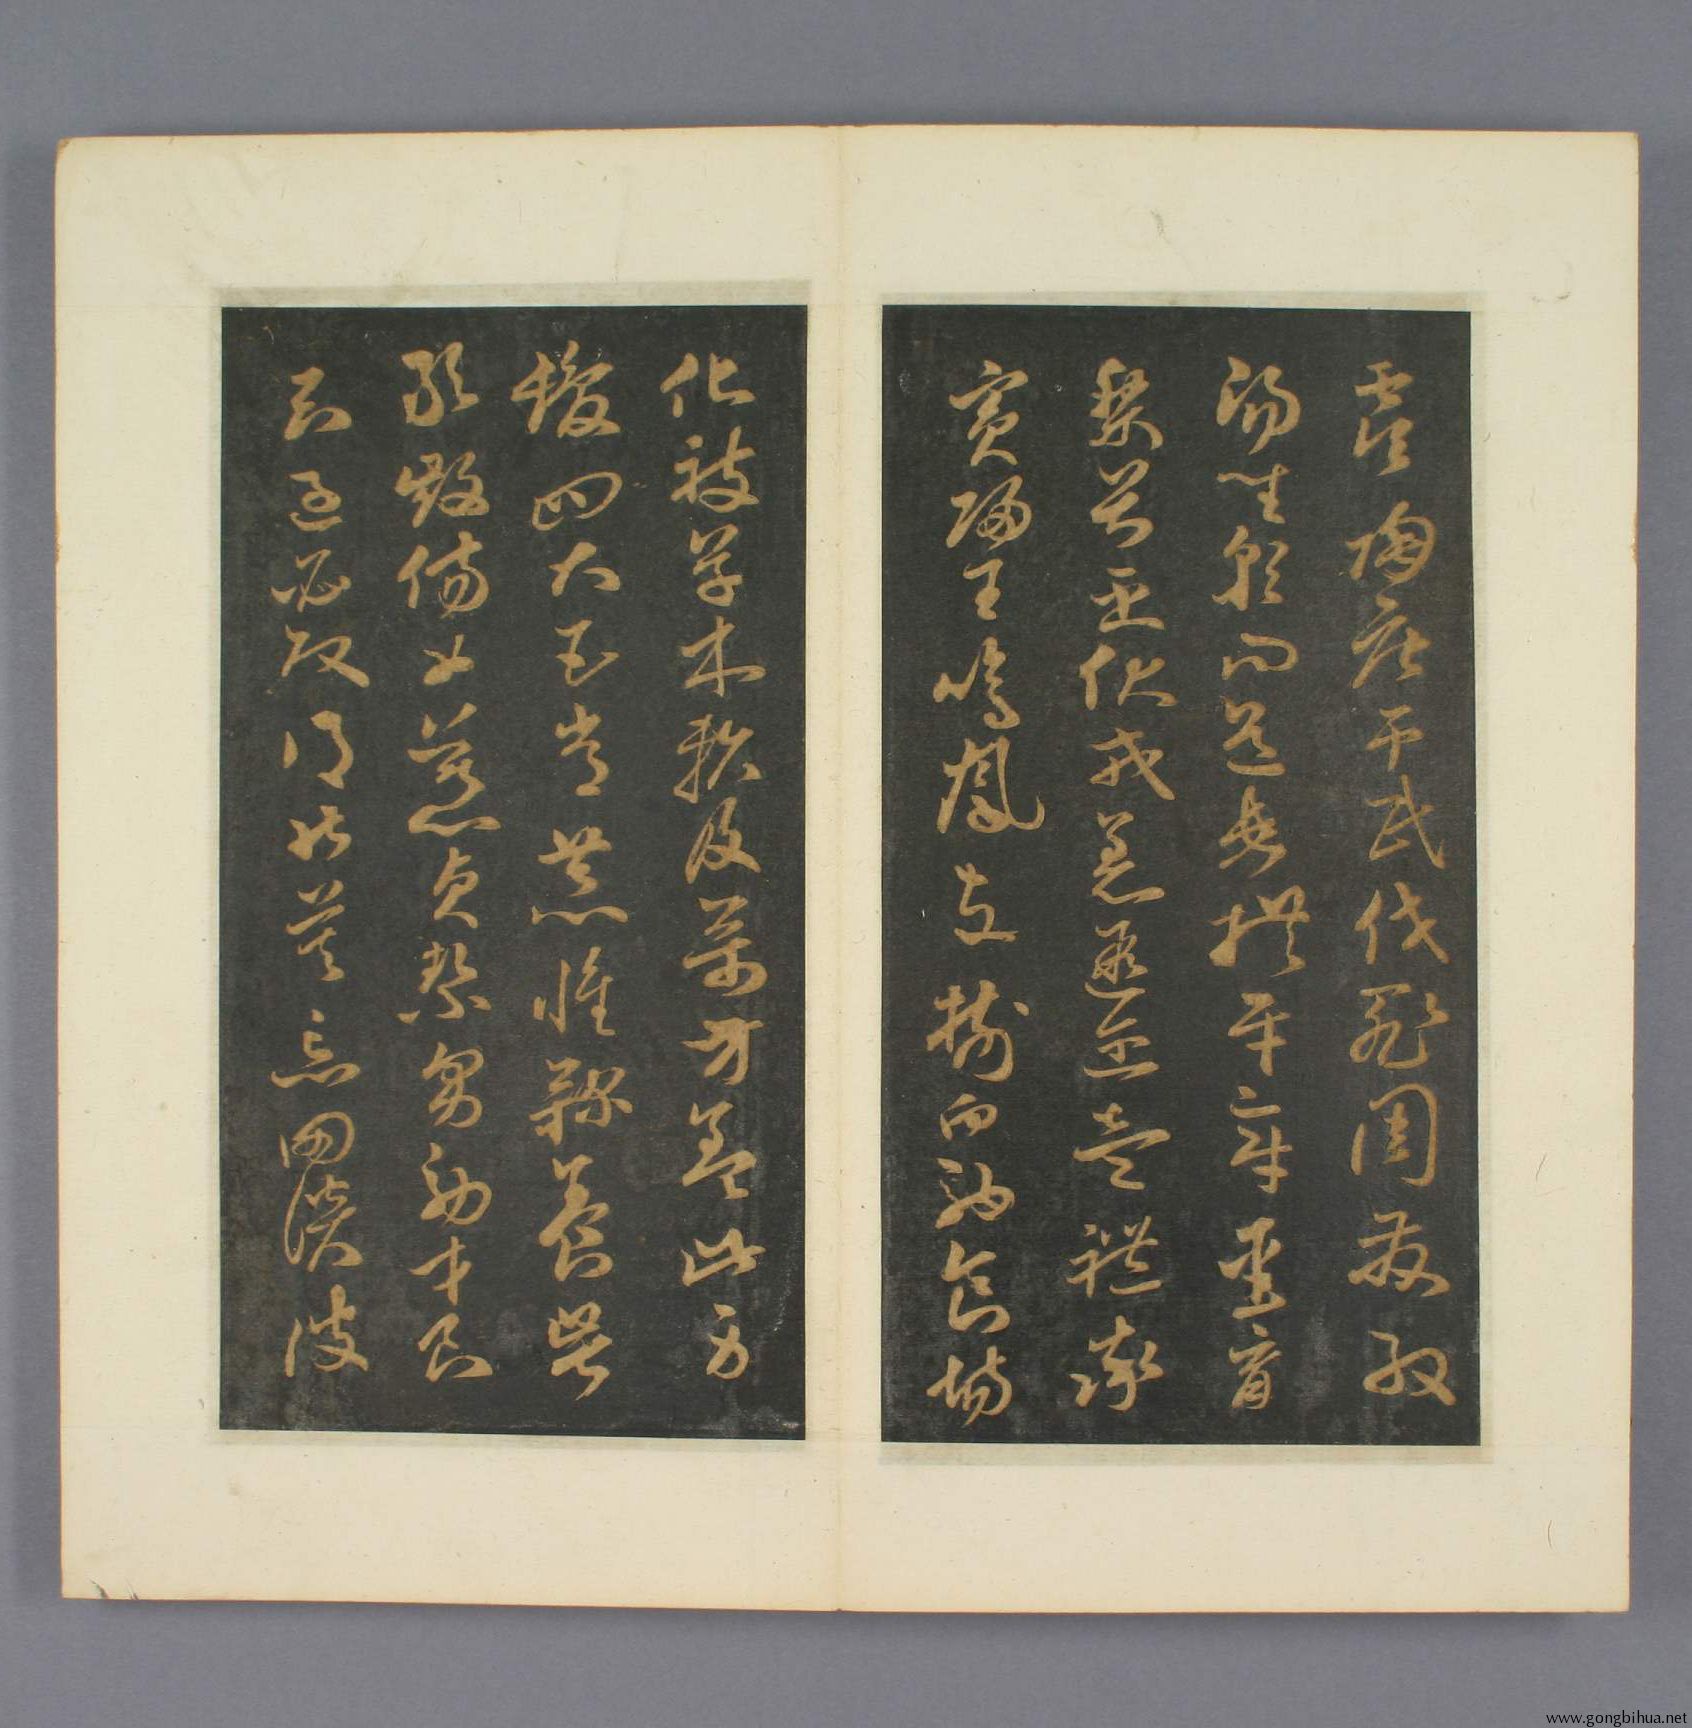 虞陶唐弔民伐罪周發殷
湯坐朝問道垂拱平章愛育
黎首臣伏戎羌遐邇壹體率
賓歸王鳴鳳在樹白駒食場
化被草木賴及萬方蓋此身
髮四大五常恭惟鞠養豈
敢毀傷女慕貞絜男效才良
知過必改得能莫忘罔談彼
www.gongbihua.net